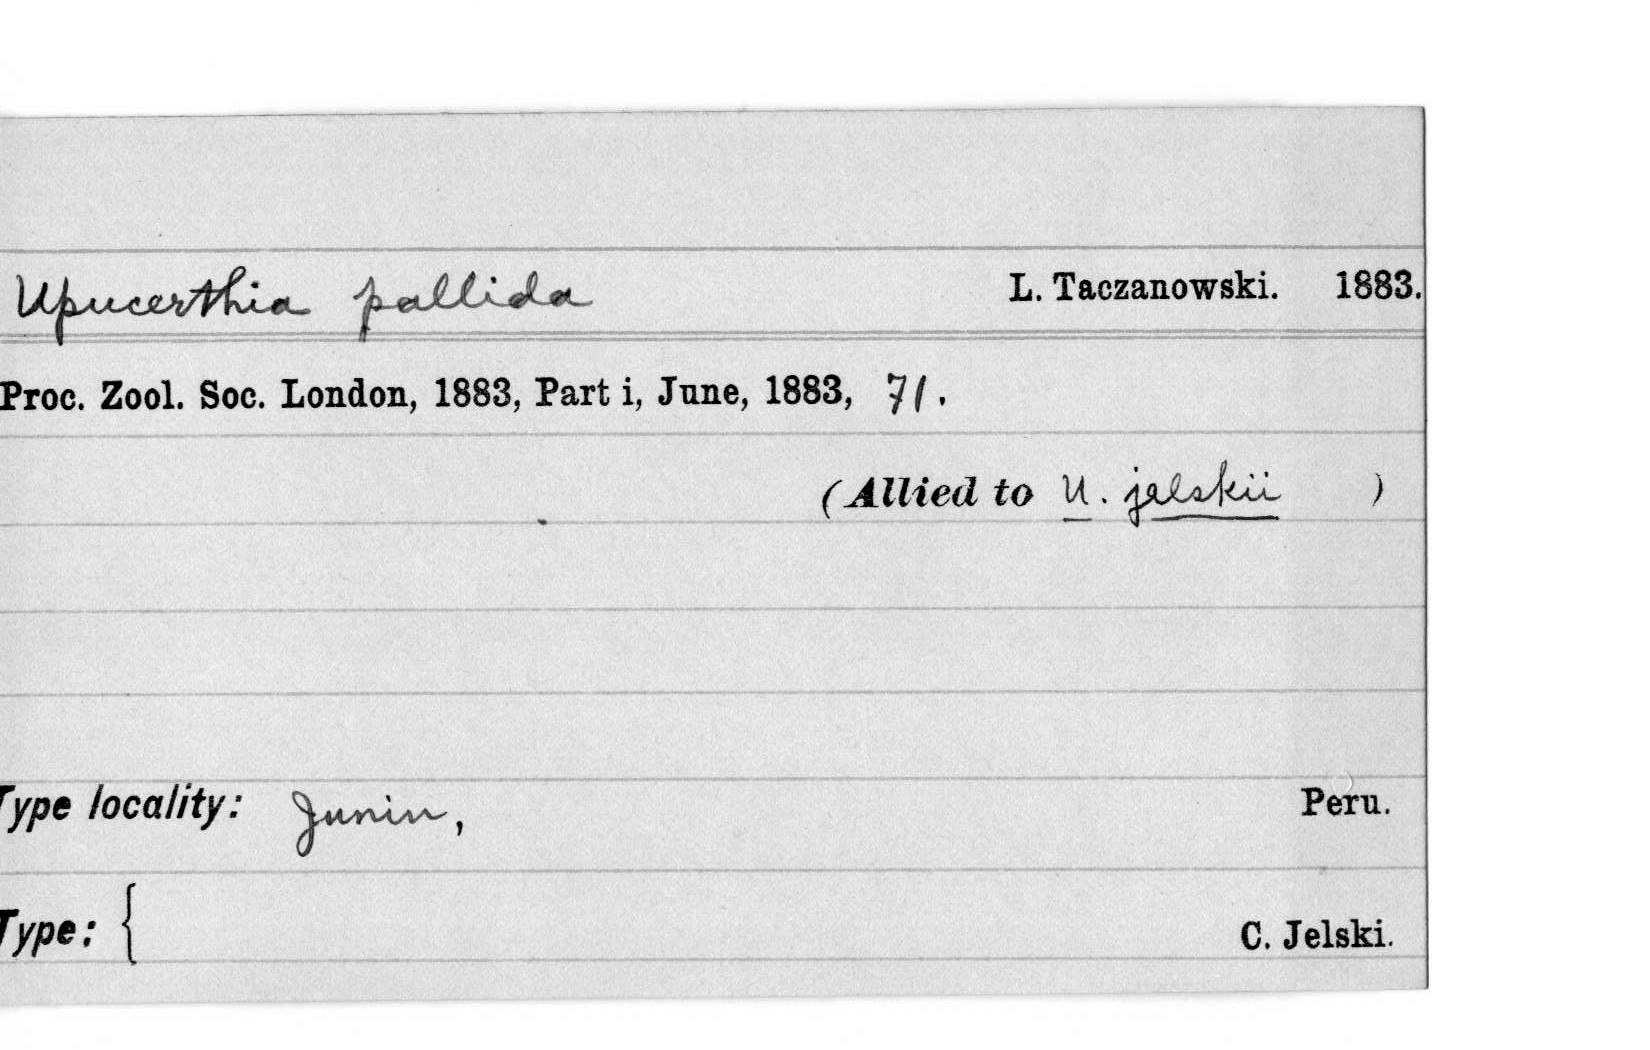 Upucerthia pallida L. Taczanowski. 1883.
Proc. Zool. Soc. London, 1883, Part i, June, 1883, 71.
(Allied to U. jelskii )
Type locality: Junin, Peru.
Type: { C. Jelski.